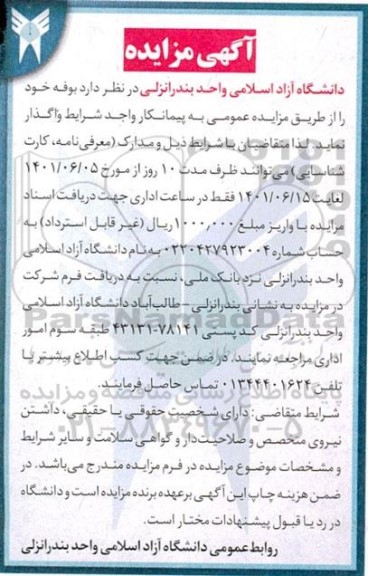 آگهی مزایده
دانشگاه آزاد اسلامی واحد بندرانزلی در نظر دارد بوفه خود
را از طریق مزایده عمومی به پیمانکار واجد شرایط واگذار
نماید. لذا متقاضیان با شرایط ذیل و مدارک (معرفی‌نامه، کارت
شناسایی) می‌توانند ظرف مدت ۱۰ روز از مورخ ۱۴۰۱/۰۶/۰۵
لغایت ۱۴۰۱/۰۶/۱۵ فقط در ساعت اداری جهت دریافت اسناد
مزایده با واریز مبلغ ۱۰۰۰۰۰۰ ریال (غیر قابل استرداد) به
حساب شماره ۰۲۲۰۴۲۷۹۲۳۰۰۴ به نام دانشگاه آزاد اسلامی
واحد بندرانزلی نزد بانک ملی، نسبت به دریافت فرم شرکت
در مزایده به نشانی بندرانزلی - طالب‌آباد دانشگاه آزاد اسلامی
واحد بندرانزلی کد پستی ۷۸۱۴۱-۴۳۱۳۱ طبقه سوم امور
اداری مراجعه نمایند. در ضمن جهت کسب اطلاع بیشتر با
تلفن ۰۱۳۴۴۴۰۱۶۲۴ تماس حاصل فرمایند.
شرایط متقاضی: دارای شخصیت حقوقی یا حقیقی، داشتن
نیروی متخصص و صلاحیت‌دار و گواهی سلامت و سایر شرایط
و مشخصات موضوع مزایده در فرم مزایده مندرج می‌باشد. در
ضمن هزینه چاپ این آگهی برعهده برنده مزایده است و دانشگاه
در رد یا قبول پیشنهادات مختار است.
روابط عمومی دانشگاه آزاد اسلامی واحد بندرانزلی
ParsNamadData
پایگاه اطلاع رسانی مناقصه و مزایده
۰۲۱-۸۸۳۴۹۶۷۰-۵